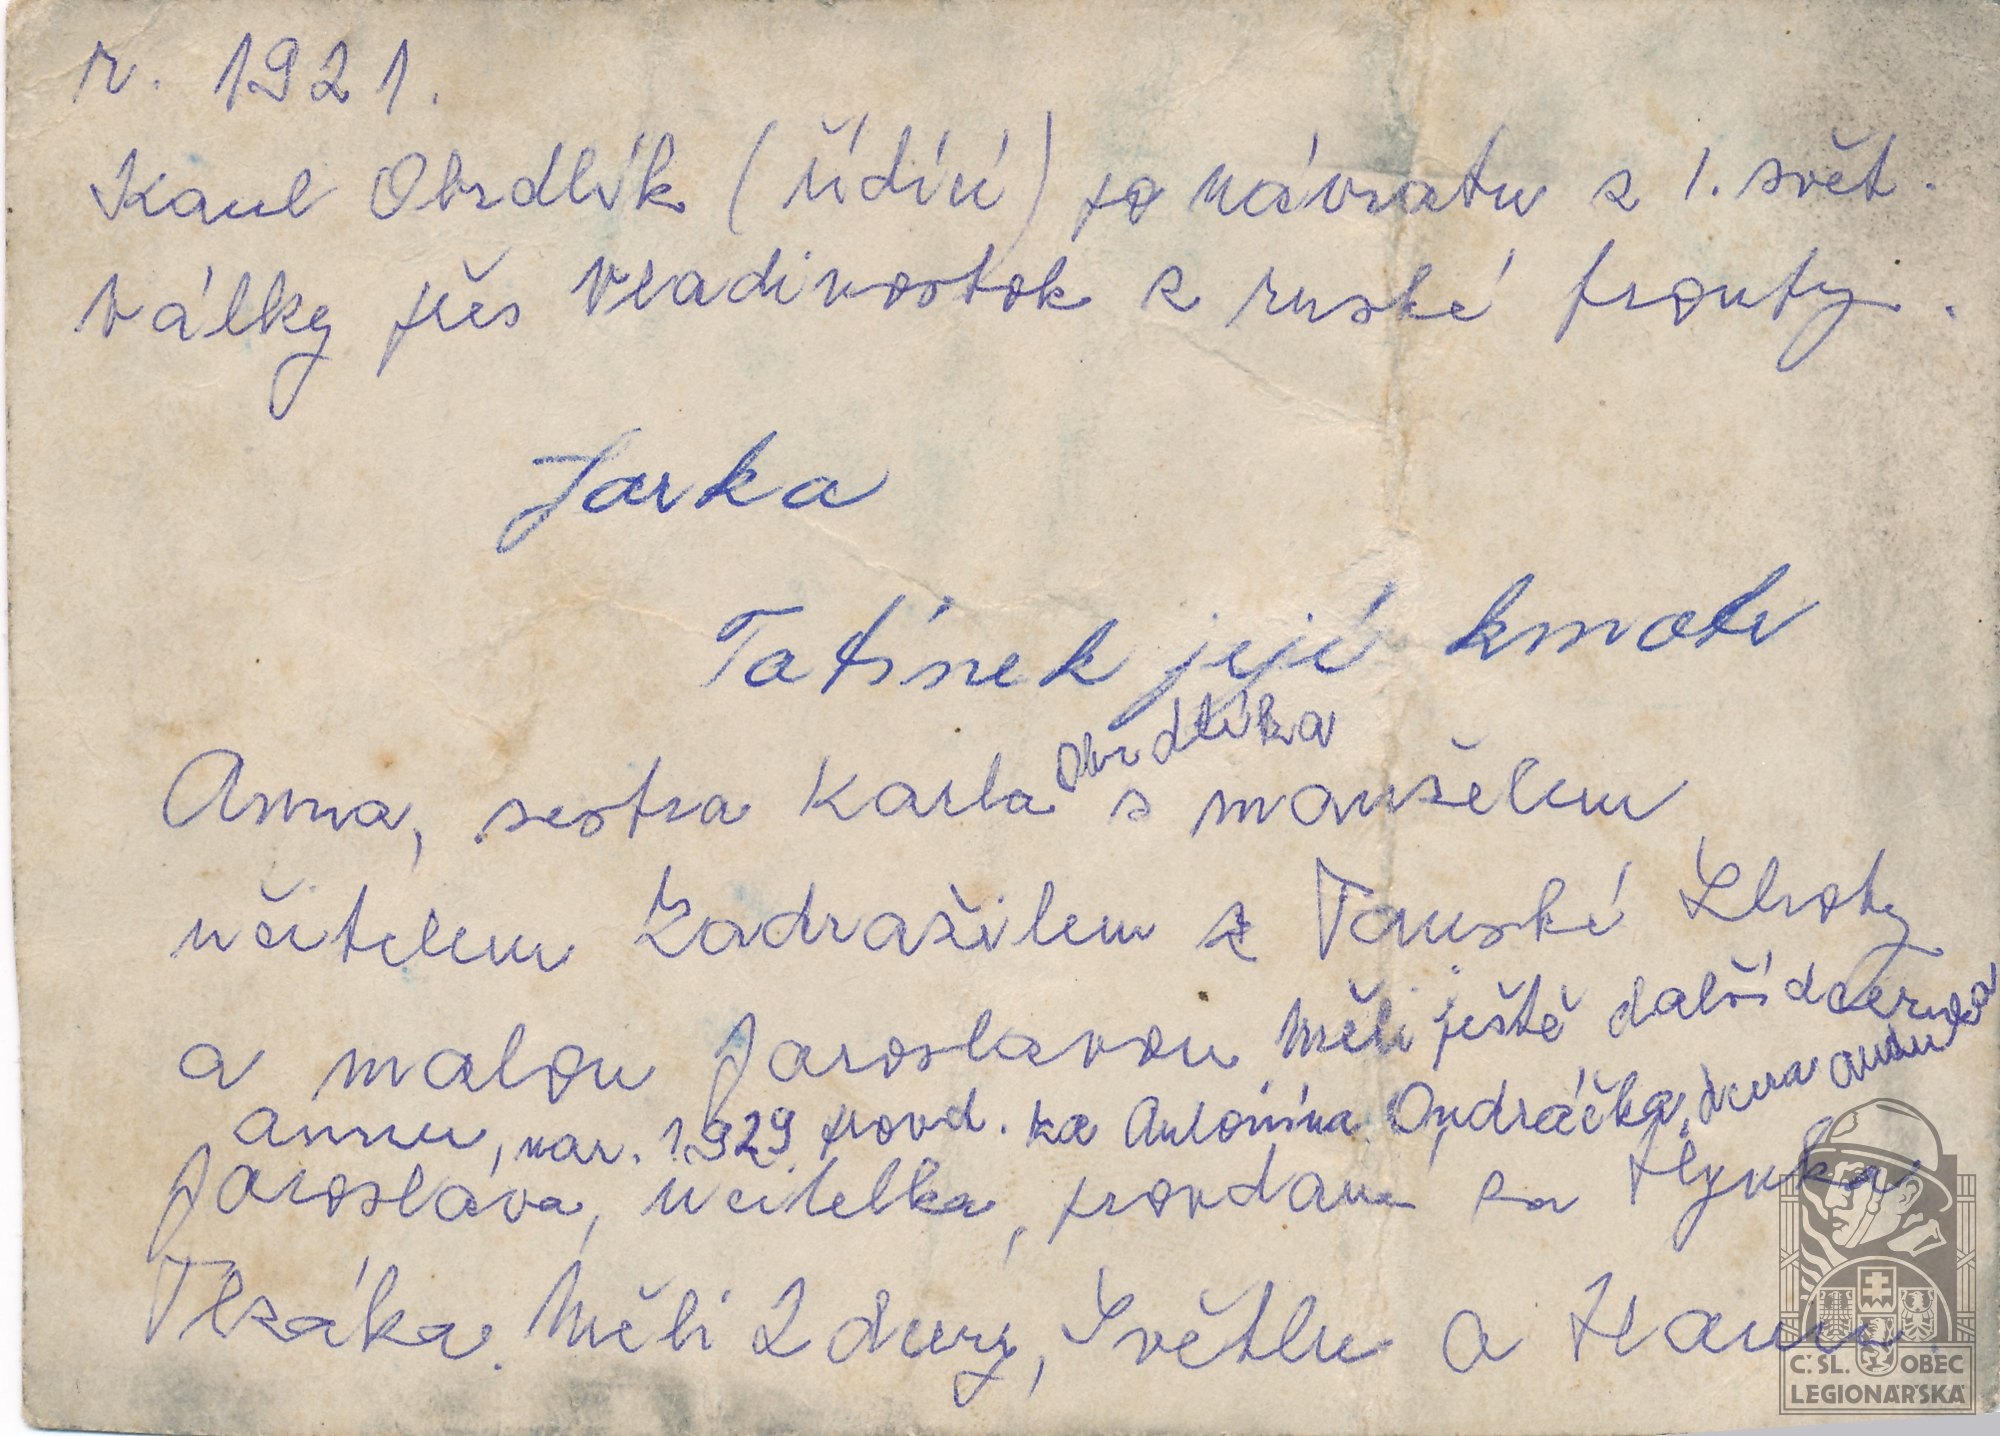 r. 1921.
Karel Obrdlík (řídící) po návratu z 1. svět.
války přes Vladivostok z ruské fronty.
Jarka
Tatínek její kmotr
Obrdlíka
Anna, sestra Karla s manželem
učitelem Zadražilem z Lhoty
a malou Jaroslavou Měli ještě další dceru
Annu, nar. 1929 provd. za Antonína Ondráčka, dcera
Jaroslava, učitelka, provdaná za Hynka
Tlzáka. Měli 2 dcery, Světlu a Hanu.
Č. SL. OBEC
LEGIONÁŘSKÁ